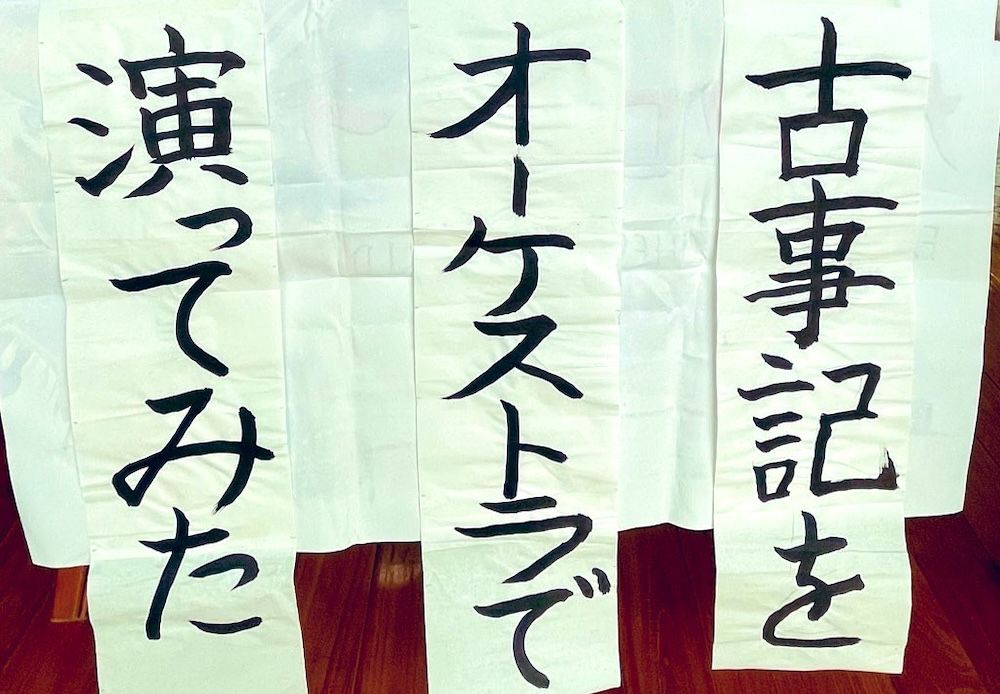 古事記を
オーケストラで
演ってみた